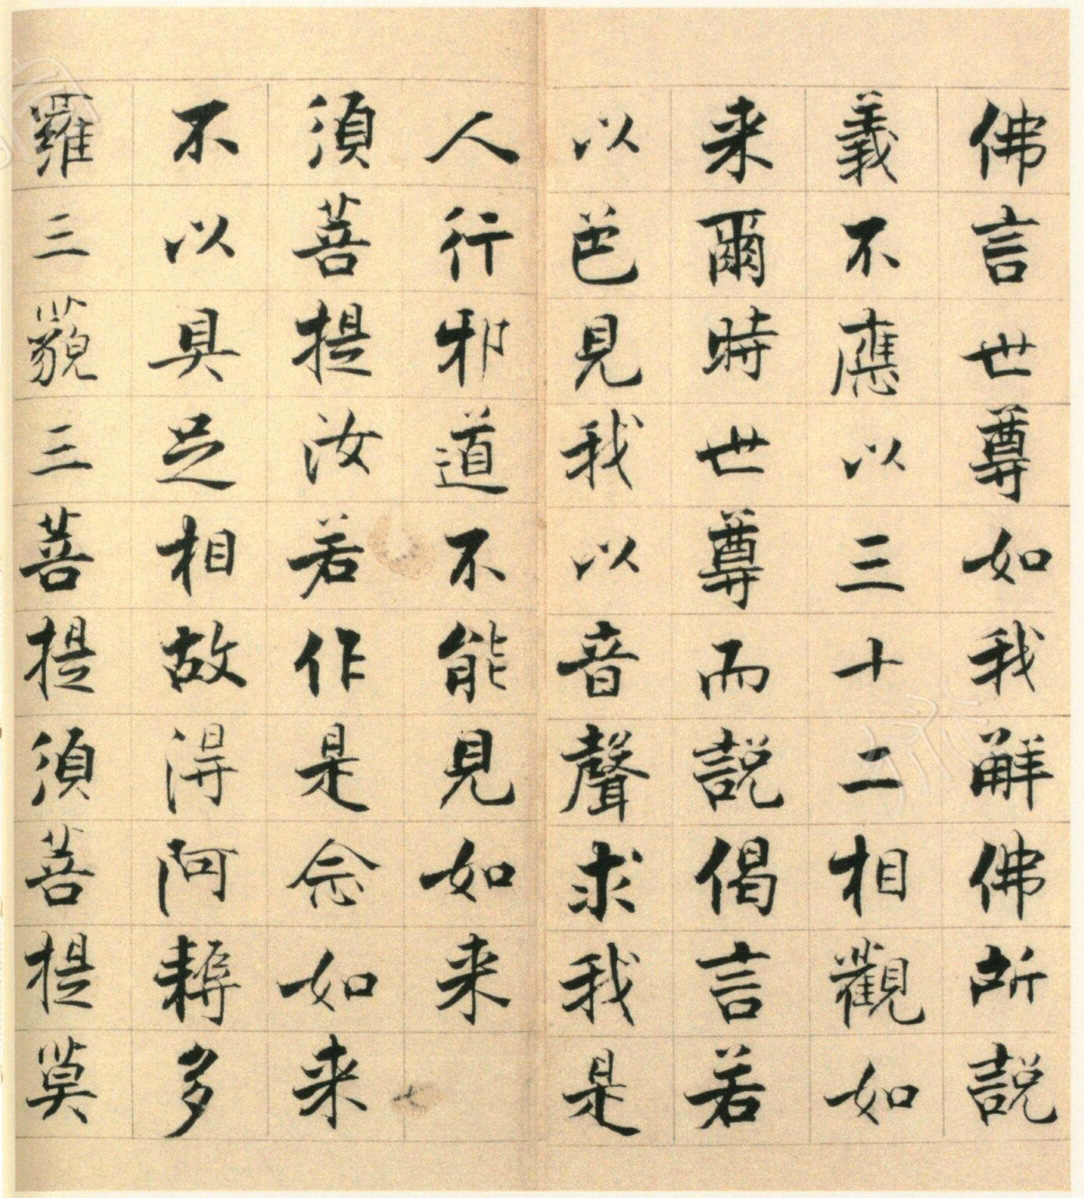 佛言世尊如我解佛所説
義不應以三十二相觀如
来爾時世尊而説偈言若
以色見我以音聲求我是
人行邪道不能見如来
須菩提汝若作是念如来
不以具足相故得阿耨多
羅三藐三菩提須菩提莫